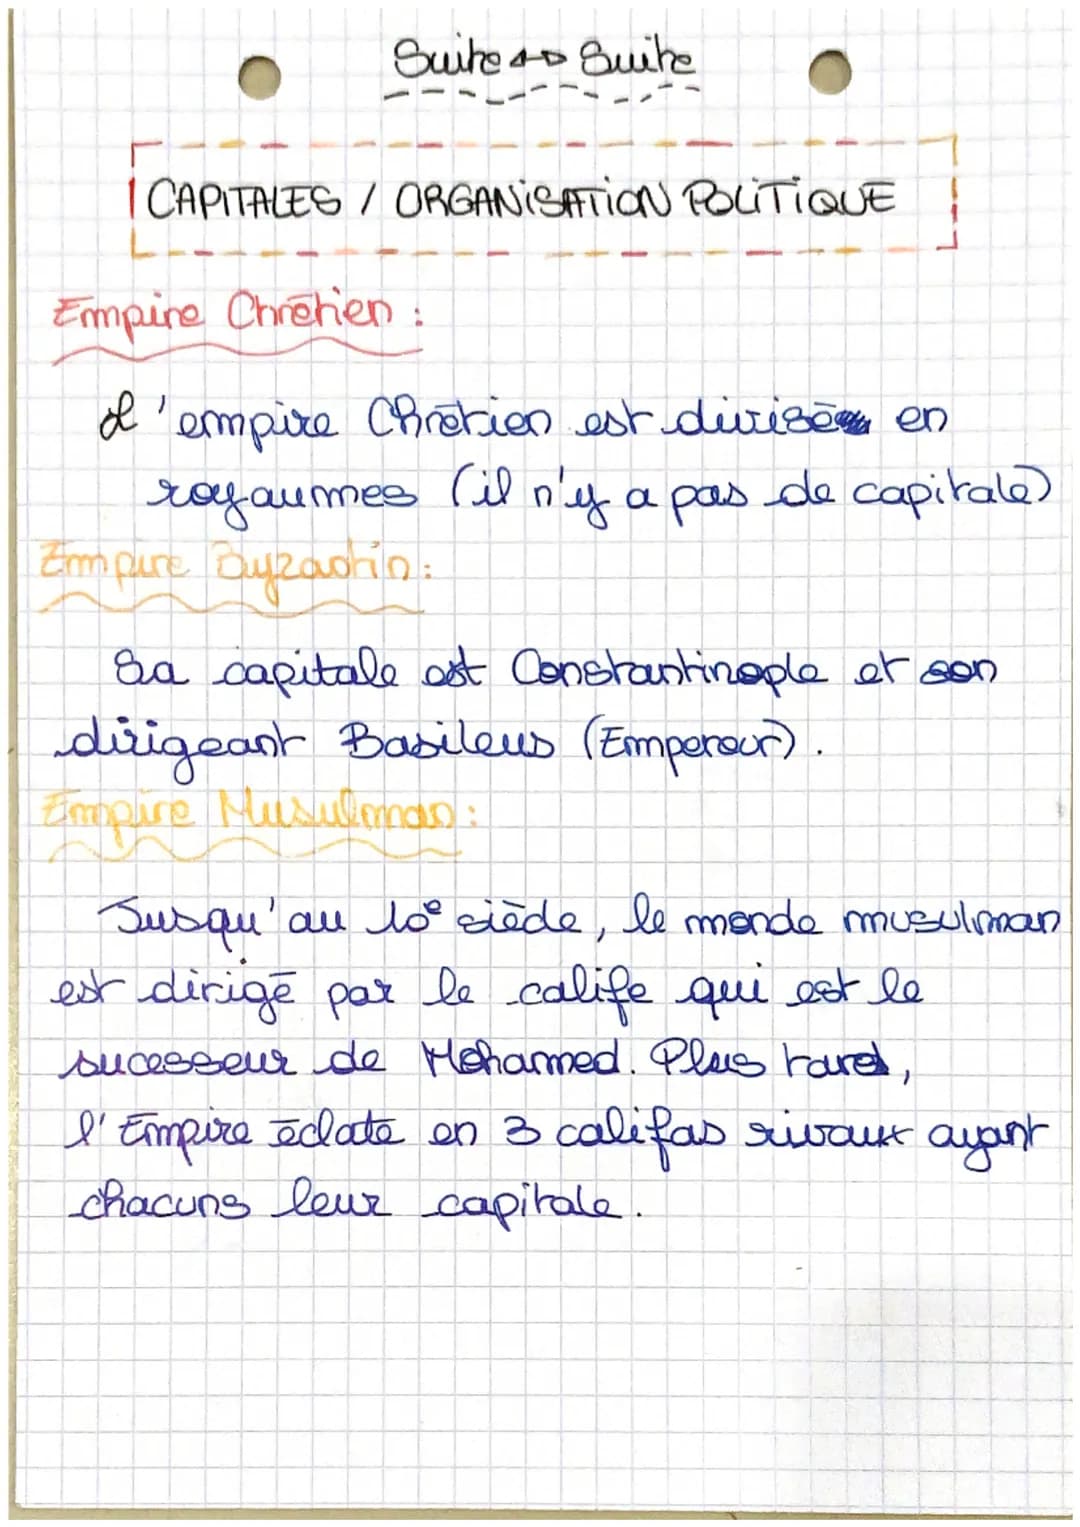 Suite ↔ Suite
CAPITALES / ORGANISATION POLITIQUE
Empire Chrétien :
L'empire Chrétien est divisé en
royaumes (il n'y a pas de capitale)
Empire Byzantin :
Sa capitale est Constantinople et son
dirigeant Basileus (Empereur).
Empire Musulman :
Jusqu'au 10e siècle, le monde musulman
est dirigé par le calife qui est le
sucesseur de Mohammed. Plus tard,
l'Empire éclate en 3 califas rivaux ayant
chacuns leur capitale.